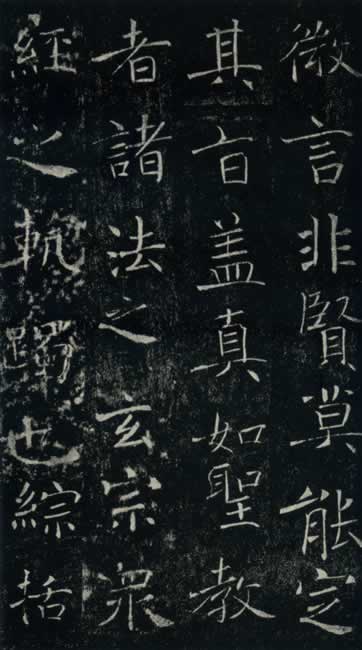 微言非賢莫能定
其旨盖真如聖教
者諸法之玄宗眾
經之軌躅也綜括